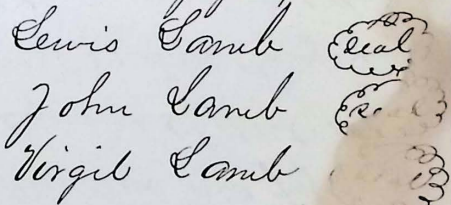 Lewis Lamb Seal
John Lamb
Virgil Lamb